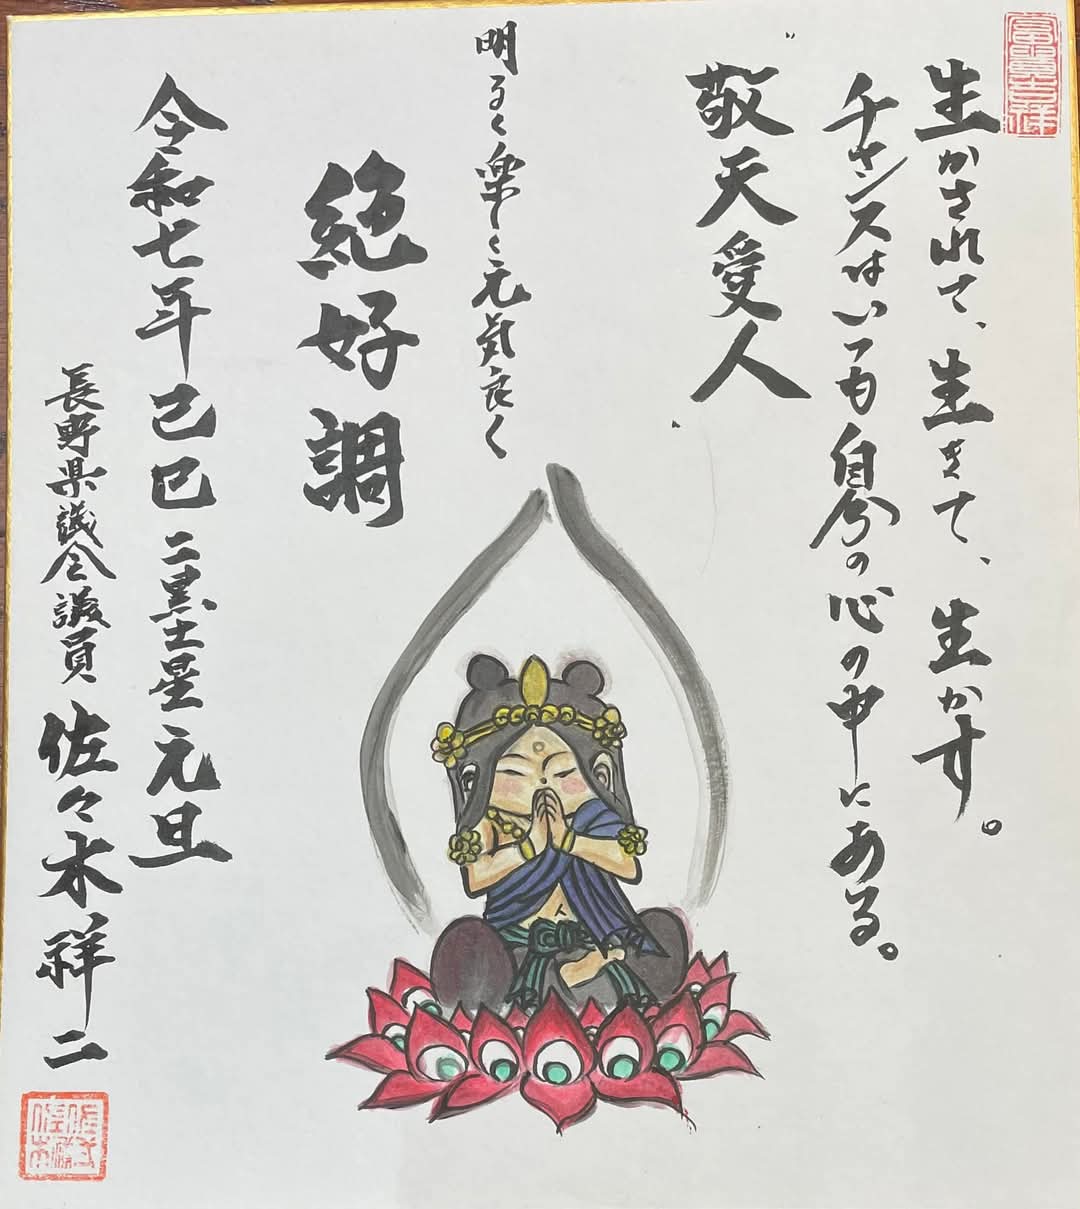 富貴吉祥
生かされて、生きて、生かす。
チャンスはいつも自分の心の中にある。
敬天愛人
明るく楽しく元気良く
絶好調
令和七年己巳二黒土星元旦
長野県議会議員 佐々木祥二